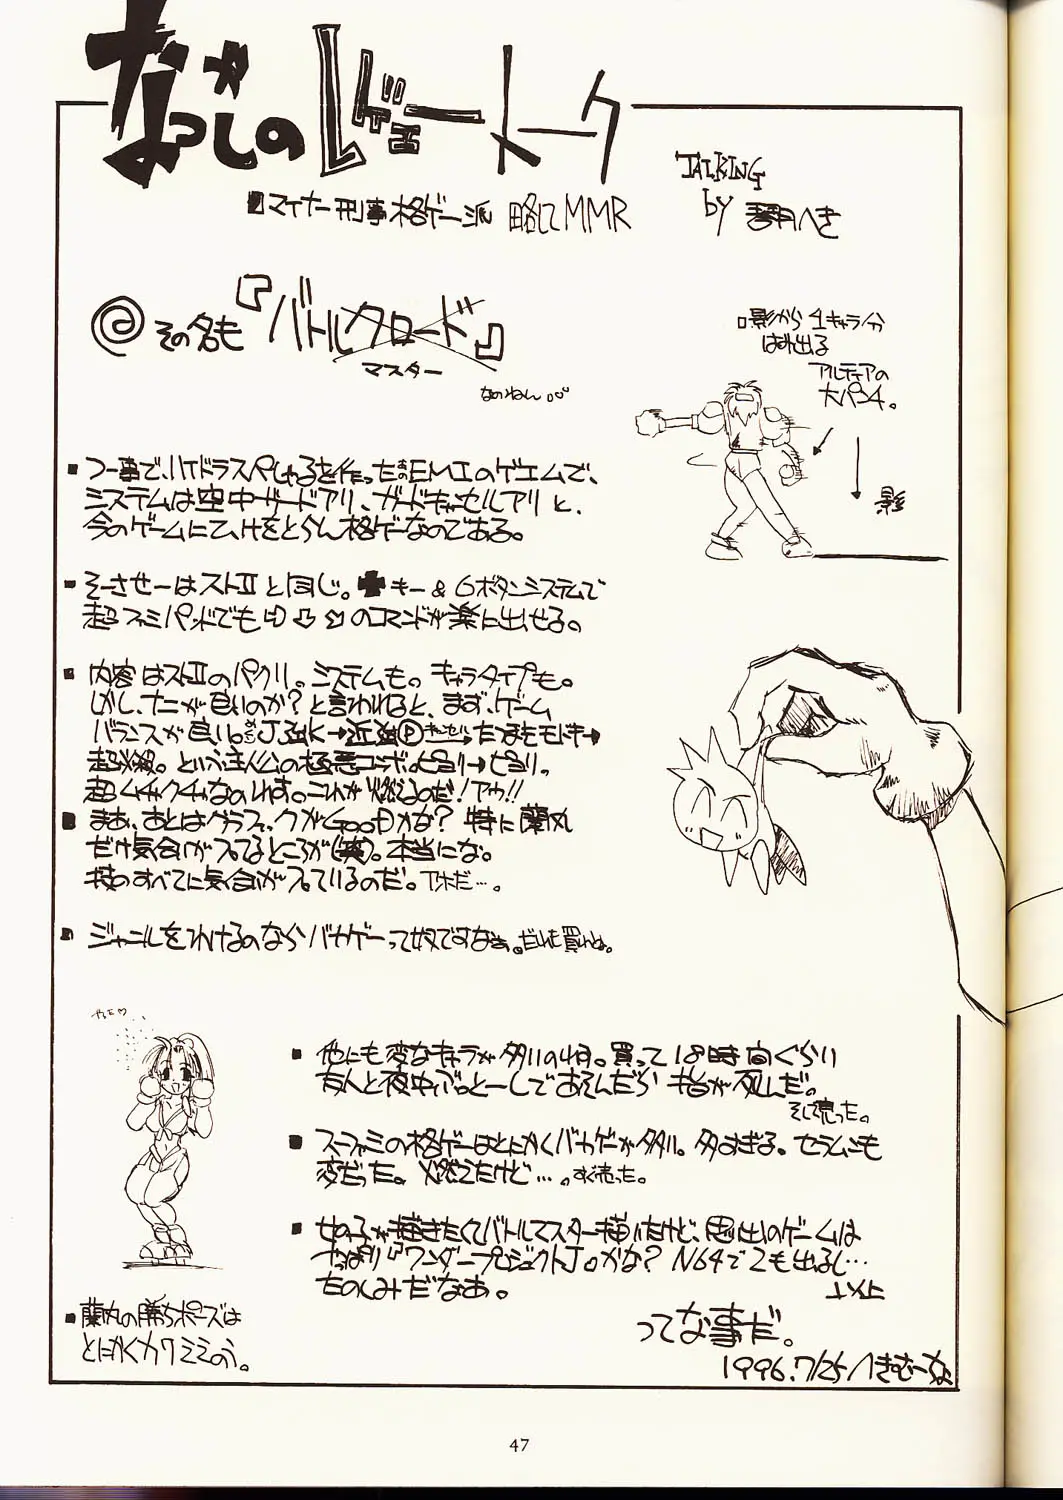 なつかしのレビュートーク
マイナー刑事格ゲー派 略してMMR
TALKING
by 琴月へき
@その名も『バトルクロード』
マスター
なのねん
影から1キャラ分
はみ出る
アルティアの
大パンチ。
影
つー事で、ハイドラスペしゃるを作ったあのEMIのゲエムで、
システムは空中ガードアリ、ガードキャンセルアリと、
今のゲームにひけをとらん格ゲーなのである。
そーさせーはストⅡと同じ。✚キー&6ボタンシステムで
超ファミパッドでも⇨⇩⬂のコマンドが楽に出せる。
内容はストⅡのパクリ。システムも。キャラタイプも。
しかし、ナニが良いのか?と言われると、まず、ゲーム
バランスが良い。J強K→近強Ⓟキャンセル→たつまきモドキ→
超必殺。という主人公の極悪コンボ。ピヨリ→ピヨリ。
超ムチャクチャなのれす。これが燃えるのだ!アゥ!!
まぁ、あとはグラフィックがGooDかな?特に蘭丸
だけ気合いが入ってるところが(笑)。本当にな。
技のすべてに気合が入っているのだ。アホだ…。
ジャンルをわけるのならバカゲーって奴ですなぁ。だれも買わん。
他にも変なキャラが多いのよね。買って18時間ぐらい
友人と夜中ぶっとーしであそんだら指が死んだ。
そして売った。
スーファミの格ゲーはとにかくバカゲーが多い。多すぎる。セラムンも
変だった。燃えたけど…。すぐ売った。
女の子が描きたくてバトルマスター描いたけど、思い出のゲームは
やっぱり『ワンダープロジェクトJ』かな?N64で2も出るし…
たのしみだなぁ。
以上
ってな事だ。
1996.7/25/へきむーな
蘭丸の勝ちポーズは
とにかくカワミミのう。
47